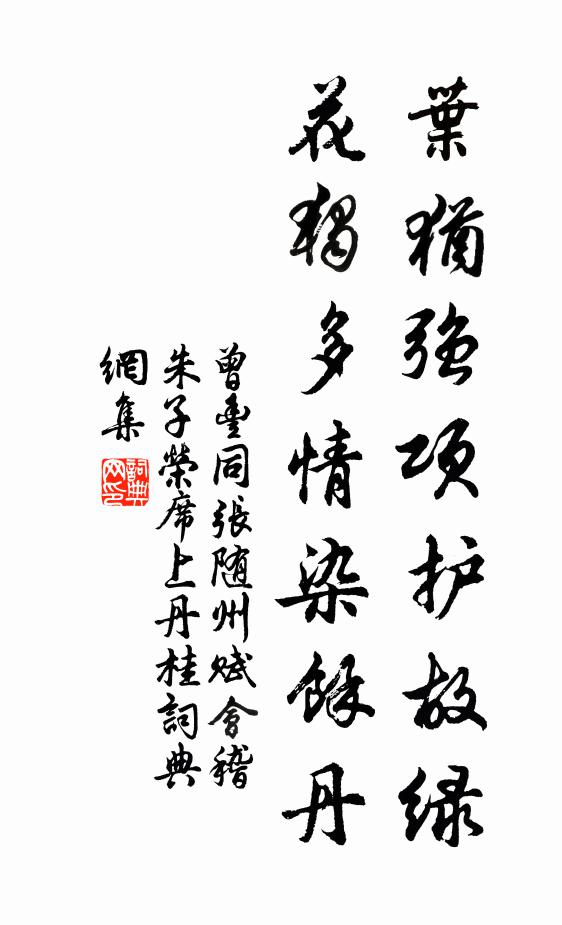 葉猶強项护故緑
花獨多情染餘丹
曾豊同張随州賦會稽
朱子榮席上丹桂詞典
網集
詞典网印